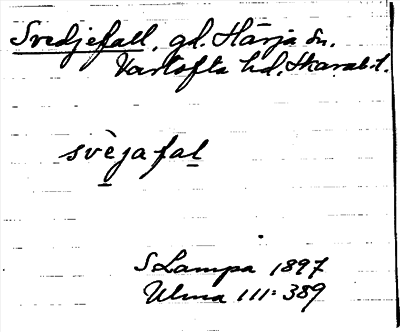 Svedjefall, gd. Härja sn.
Vartofta hd. Skarab. l.
svèjafal
S Lampa 1897
Ulma 111:389